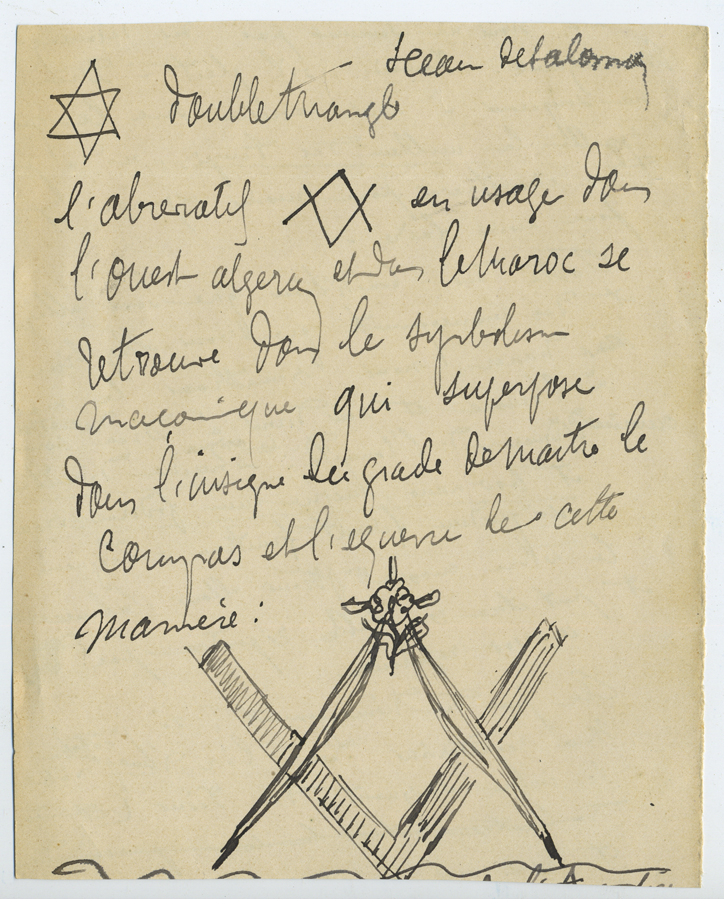 Sceau de Salomon
double triangle
l'abréviatif en usage dans
l'Ouest algérien et dans le Maroc se
retrouve dans le symbolisme
maçonnique qui superpose
dans l'insigne du grade de maitre le
Compas et l'equerre de cette
manière :